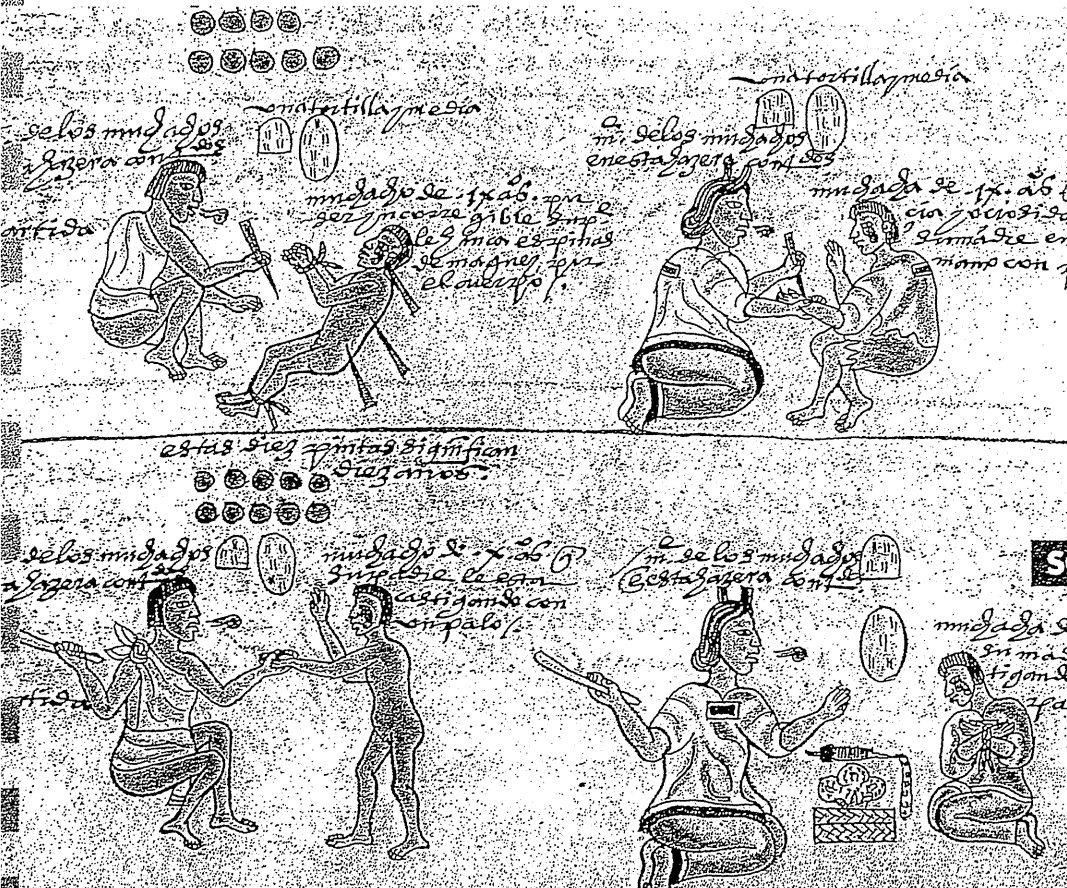 una tortilla y media
de los muchachos
hazera con dos
artida
muchacho de .ix. aºs. por
ser yncorregible su pe
le hinca espinas
de maguey, por
el cuerpo /.
una tortilla y media
de los muchachos
en esta hazera con dos
muchacha de .ix. aºs
cia y ociosida
su madre en
mano con
estas diez pintas significan
diez años.
de los muchachos
a hazera con dos
tida
muchacho de .x. aºs q
su padre le esta
castigando con
un palo /.
de los muchachos
esta hazera con
muchacha d
su mad
tigand
pa
S